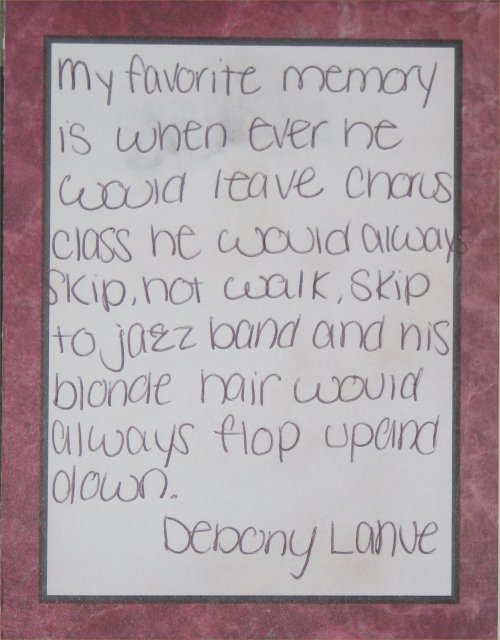 My favorite memory
is when ever he
would leave chorus
class he would always
skip, not walk, skip
to jazz band and his
blonde hair would
always flop up and
down.
Debony Lanue